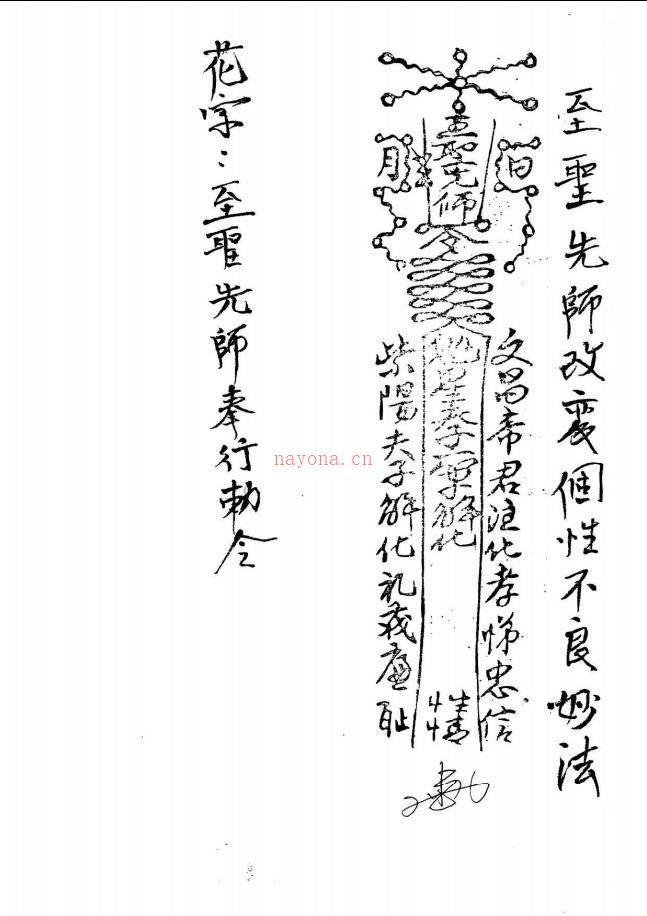 至聖先師改變個性不良妙法
日
月
至聖先師
令
文昌帝君注化孝悌忠信
解化
情
紫陽夫子解化礼義廉恥
花字:至聖先師奉行勅令
nayona.cn